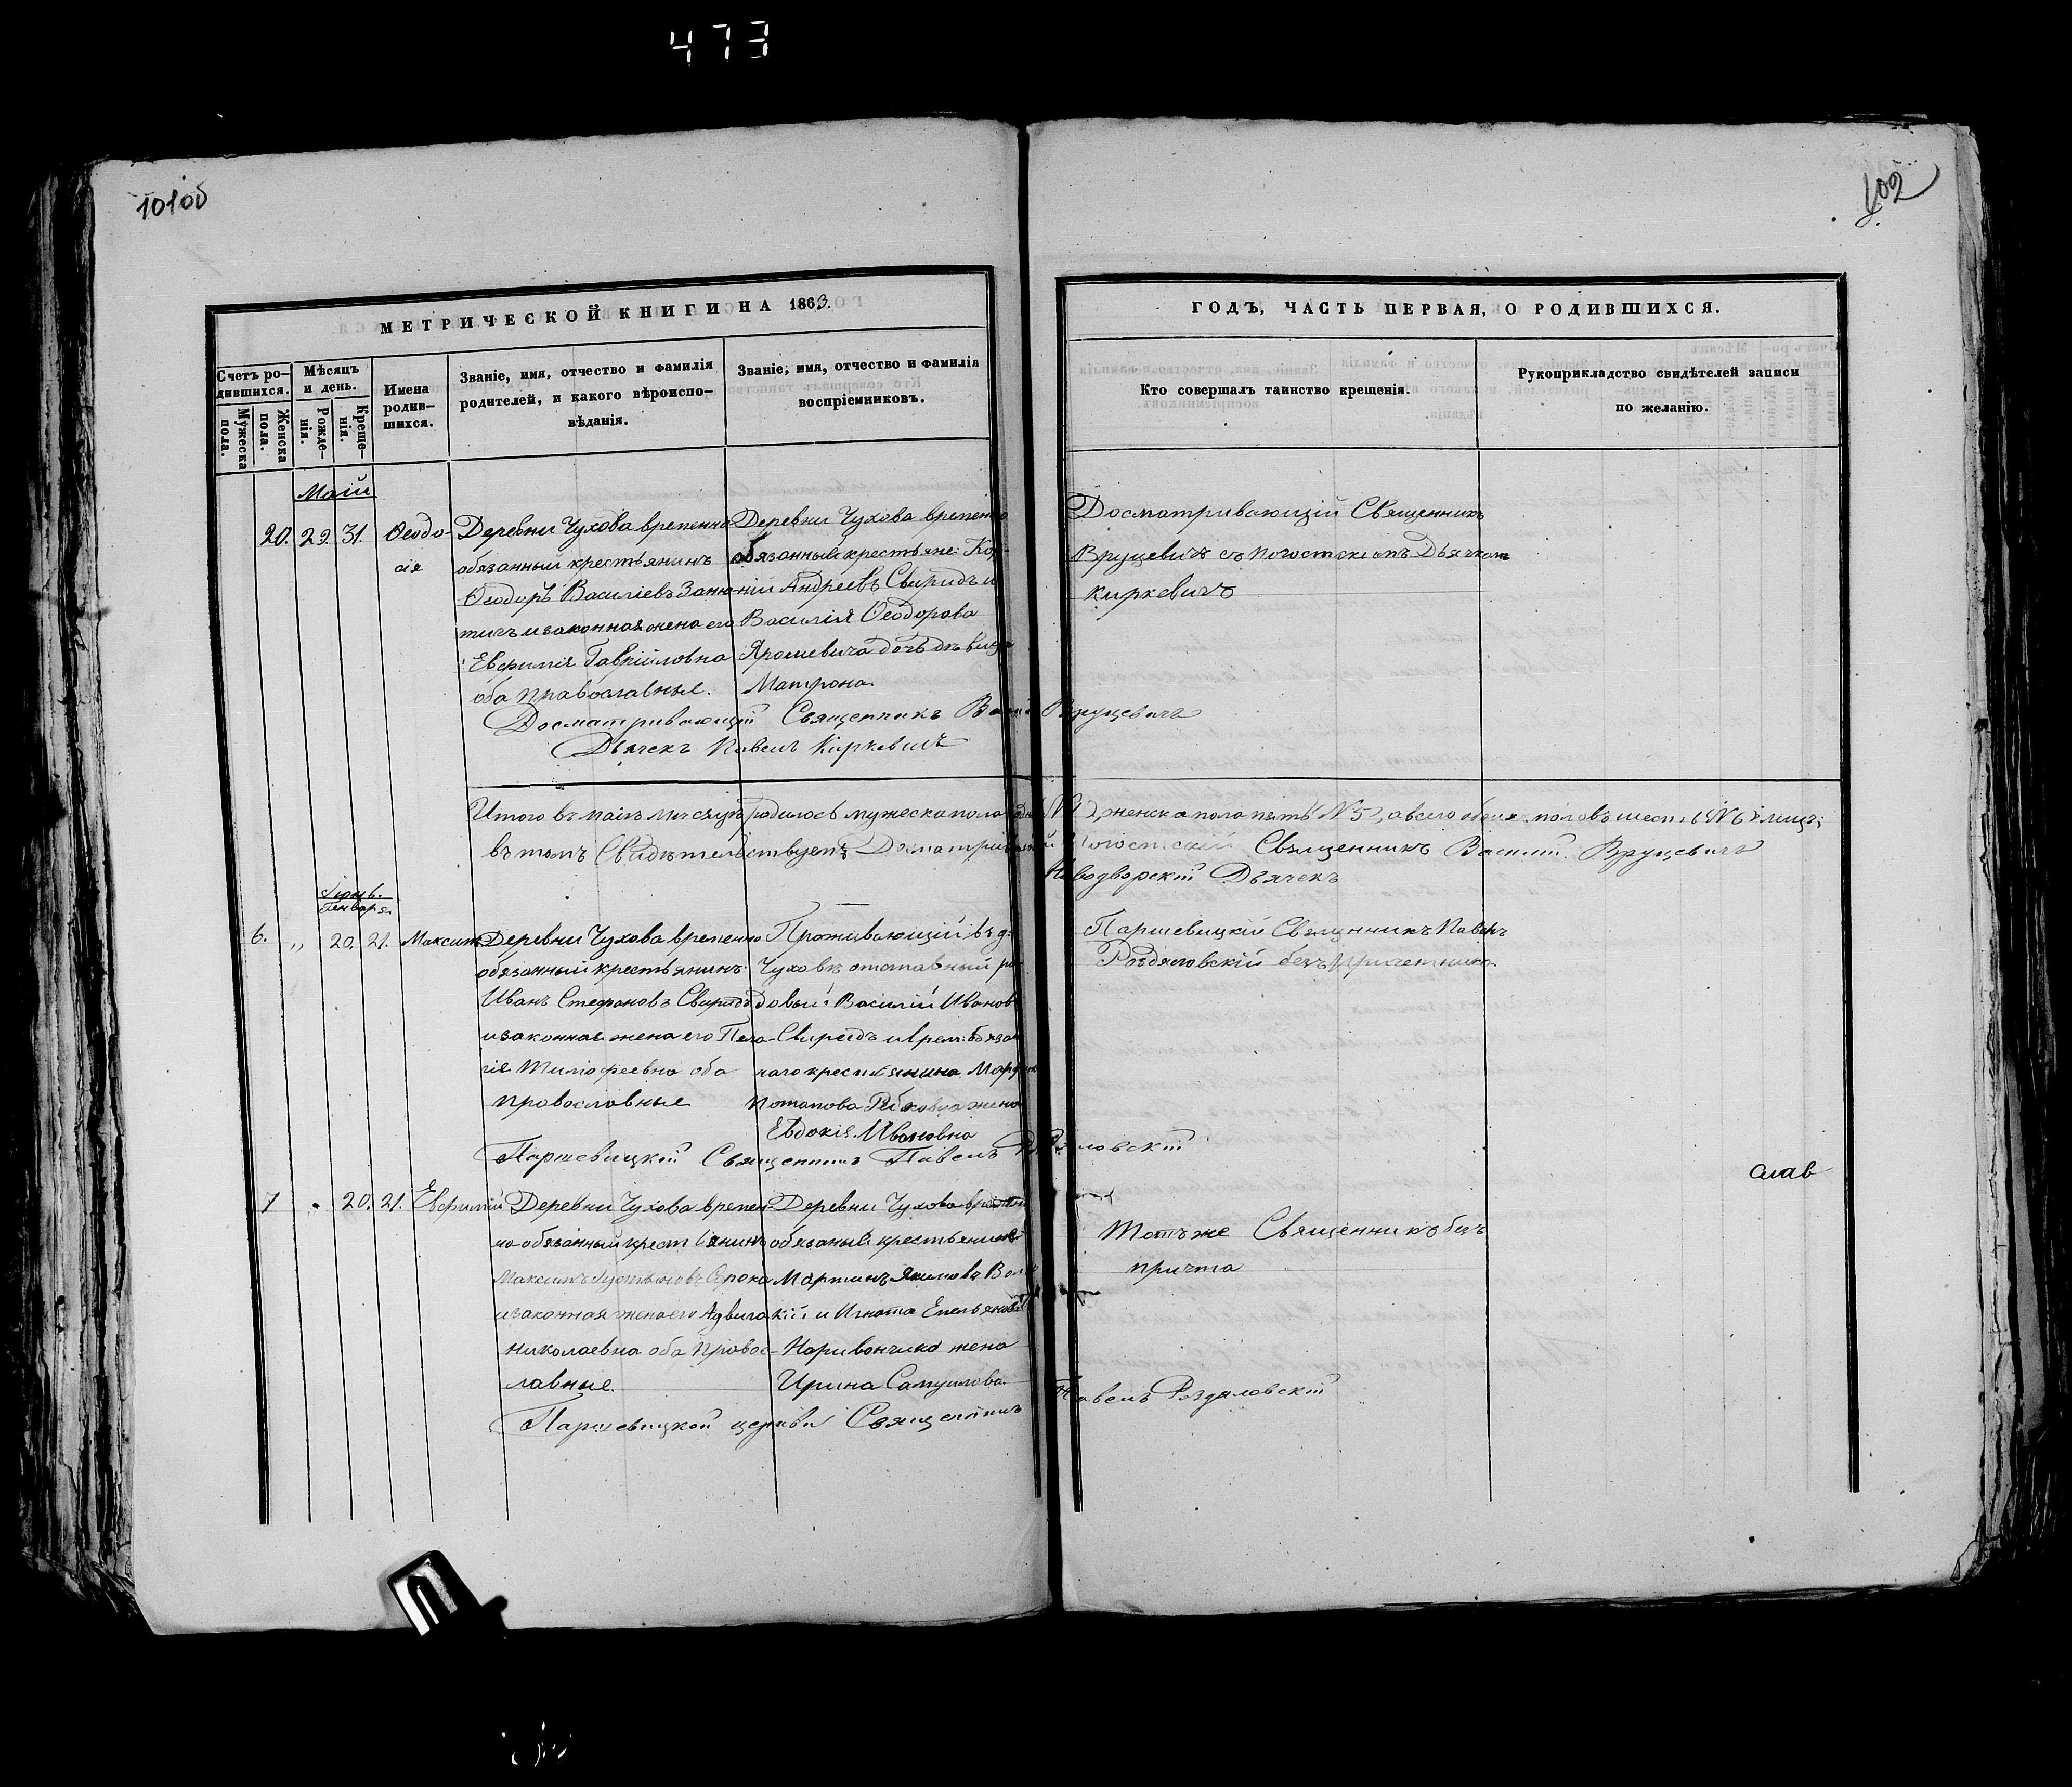 473
101об
102
МЕТРИЧЕСКОЙ КНИГИ НА 1863.
ГОДЪ, ЧАСТЬ ПЕРВАЯ, О РОДИВШИХСЯ.
Счетъ ро-
дившихся.
Мужеска
пола.
Женска
пола.
Мѣсяцъ
и день.
Рожде-
нія.
Креще-
нія.
Имена
родив-
шихся.
Званіе, имя, отчество и фамилія
родителей, и какого вѣроиспо-
вѣданія.
Званіе, имя, отчество и фамилія
воспріемниковъ.
Кто совершалъ таинство крещенія.
Рукоприкладство свидѣтелей записи
по желанію.
Маій
20. 29. 31. Ѳеодо-
сія
Деревни Чухова временно
обязанный крестьянинъ
Ѳеодоръ Василіевъ
и законная жена его
Евфимія Гавріиловна
оба православные.
Деревни Чухова временно
обязанный крестьяне
Андреевъ Свиридъ и
Василія Ѳеодорова
Ярошевича дочь дѣвица
Матрона.
Досматривающій Священникъ
Вруцевичъ съ погостскимъ Дьячкомъ
Киркевичъ
Досматривающій Священникъ Вруцевичъ
Дьячекъ Павелъ Киркевичъ
Итого въ маіѣ мѣсяцѣ родилось мужеска пола женска пола пять №5, а всего обоихъ половъ
въ томъ свидѣтельствуетъ Священникъ Василій Вруцевичъ
Дьячекъ
Генваря
6. „ 20. 21. Максимъ
Деревни Чухова временно
обязанный крестьянинъ
Иванъ Стефановъ Свиридъ
и законная жена его Пела-
гія Тимофеевна оба
православные
Проживающій въ д.
Чуховѣ отставный ря-
довый Василій Иванов
Свиридъ и врем. обязан
наго крестьянина
Потапова жена
Евдокія Ивановна
Паршевицкій Священникъ Павелъ
Роздяловскій безъ причетника
Паршевицкій Священникъ Павелъ
7 20. 21. Евфимій
Деревни Чухова времен-
но обязанный крестьянинъ
Максимъ Сорока
и законная жена его Адвига
Николаевна оба правос-
лавные.
Деревни Чухова
обязаный крестьянинъ
Мартинъ Якимовъ
и Игната Емельянова
жена
Ирина Самуилова
Тотъ же Священникъ безъ
причта
слав
Паршевицкой церкви Священникъ Павелъ Роздяловскій